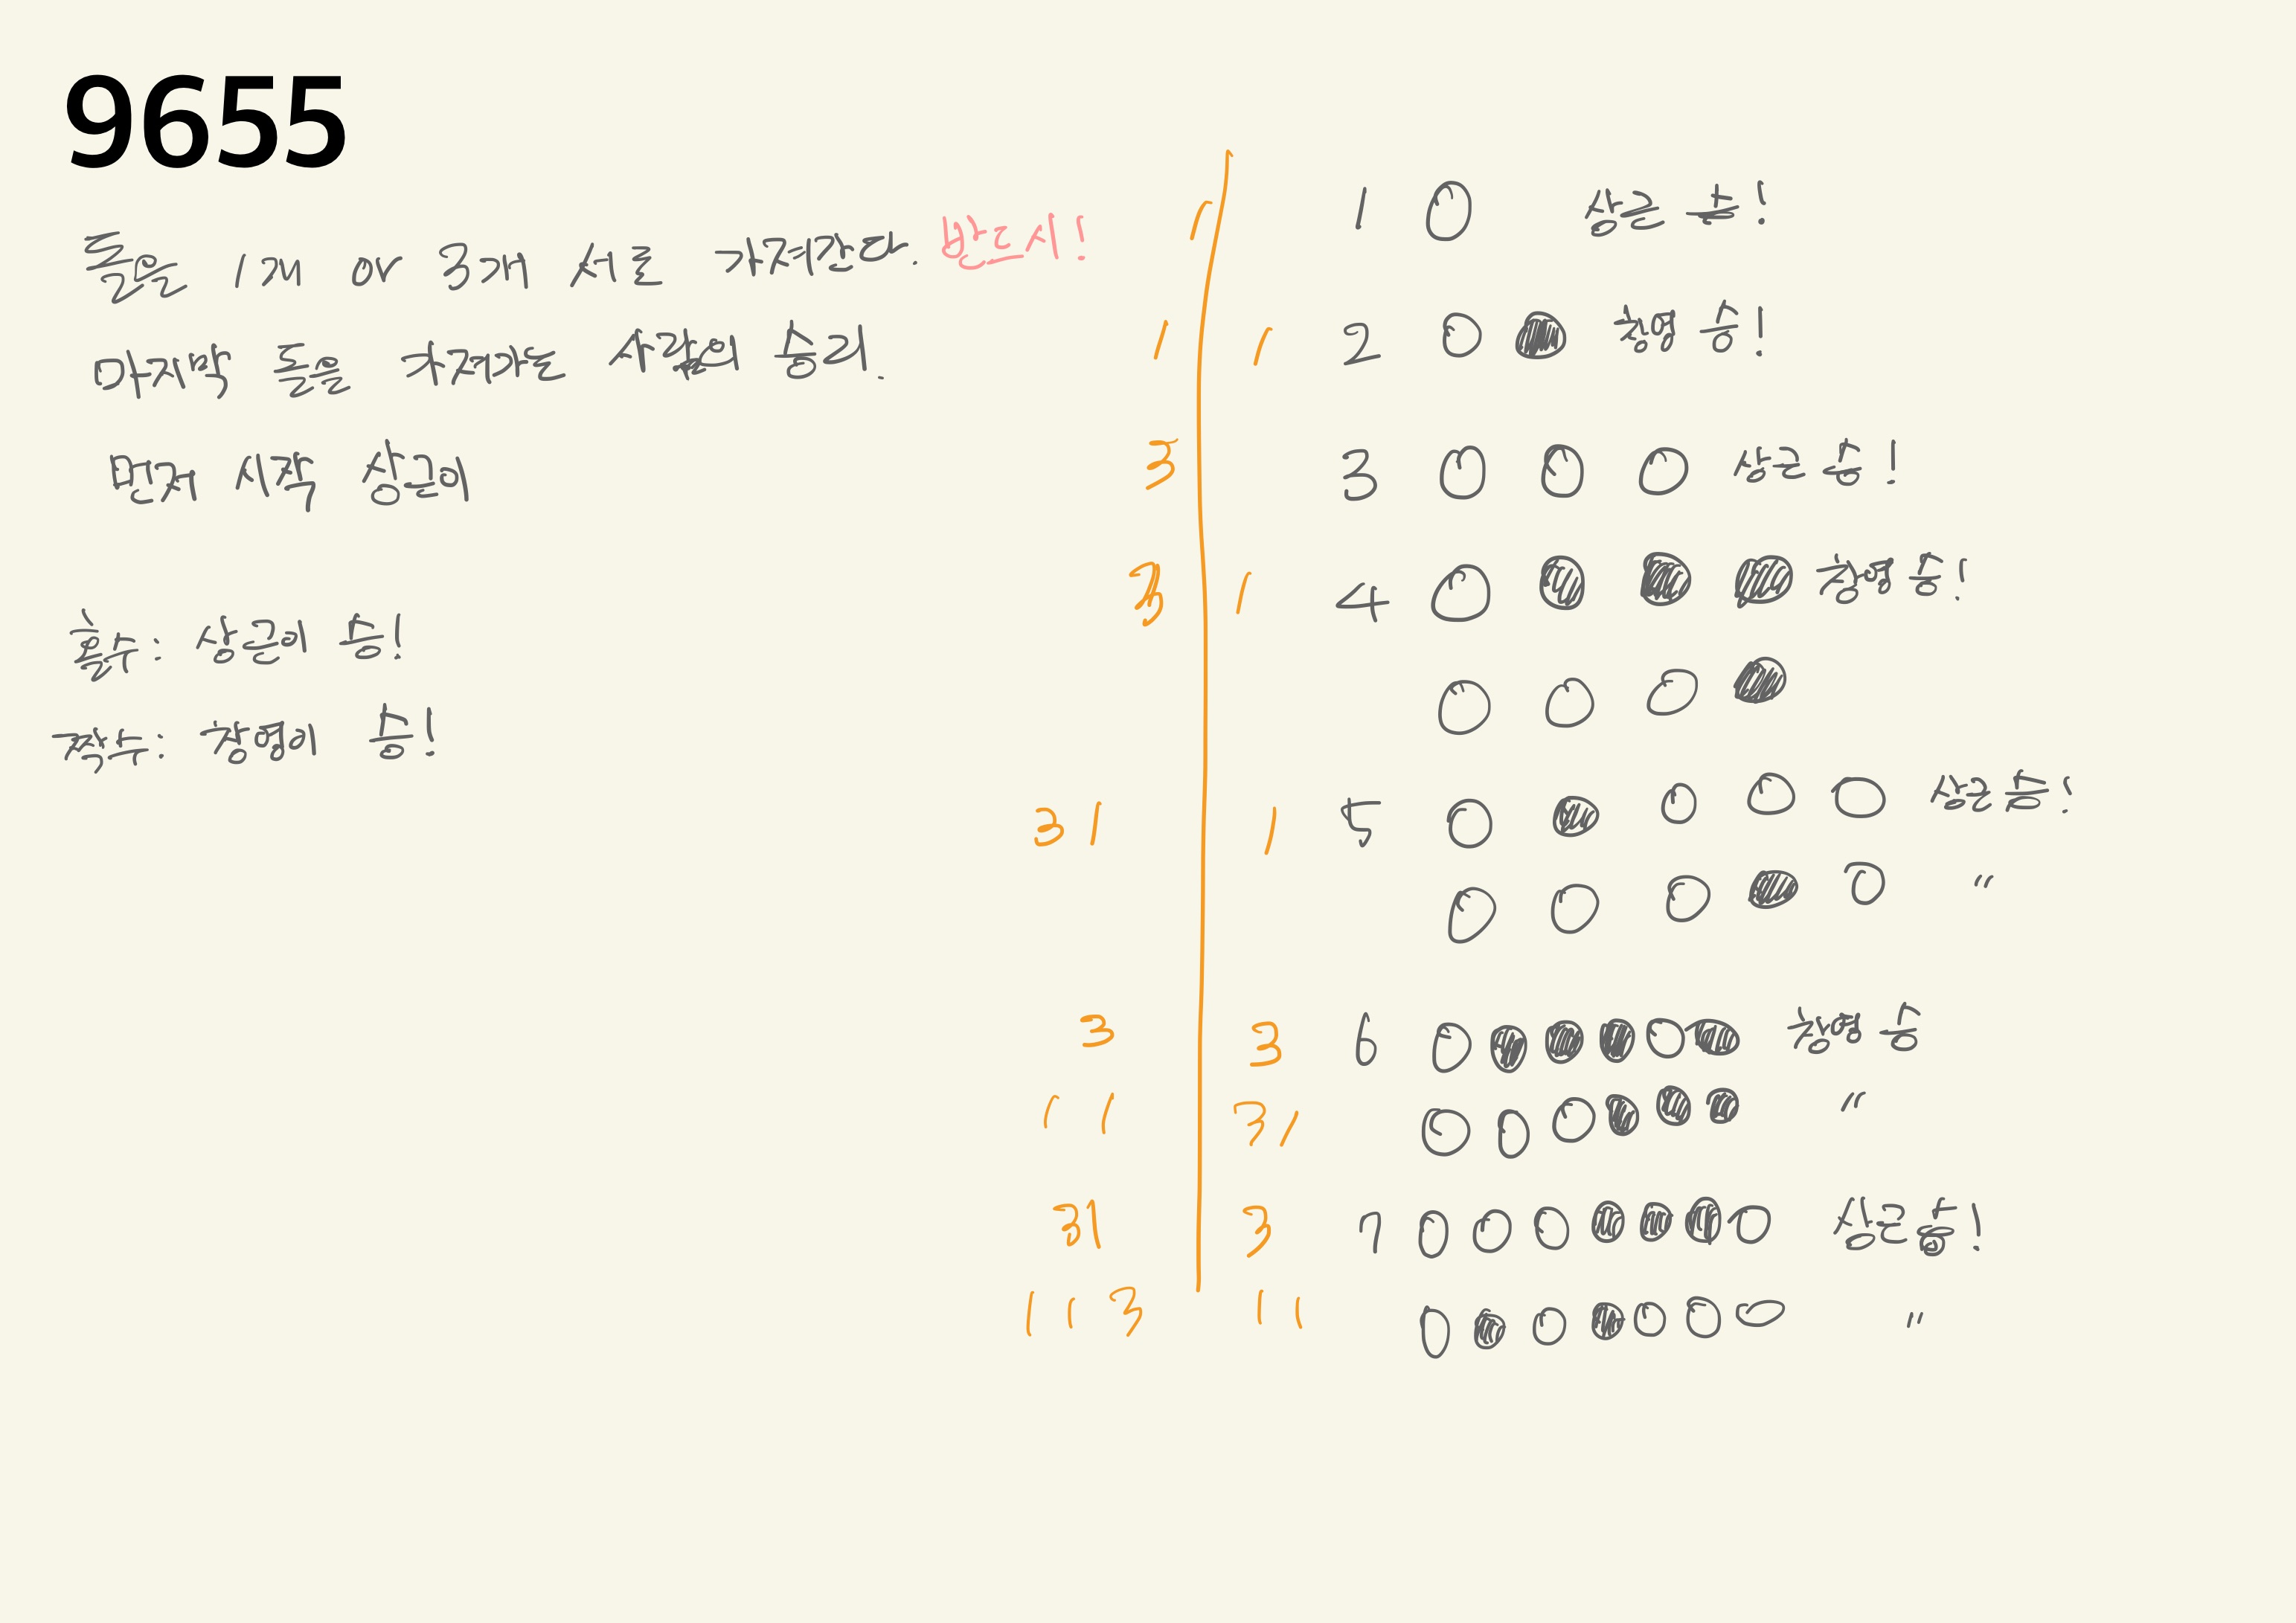 9655
돌을 1개 or 3개 서로 가져간다. 반드시!
마지막 돌을 가져가는 사람의 승리.
먼저 시작 상근이
홀수: 상근이 승!
짝수: 창영이 승!
1 1 상근 승!
1 1 2 창영 승!
3 3 상근 승!
3 1 4 창영 승!
3 1 1 5 상근 승!
"
3 3 6 창영 승
1 1 3 1 "
3 1 3 7 상근 승!
1 1 3 1 1 "